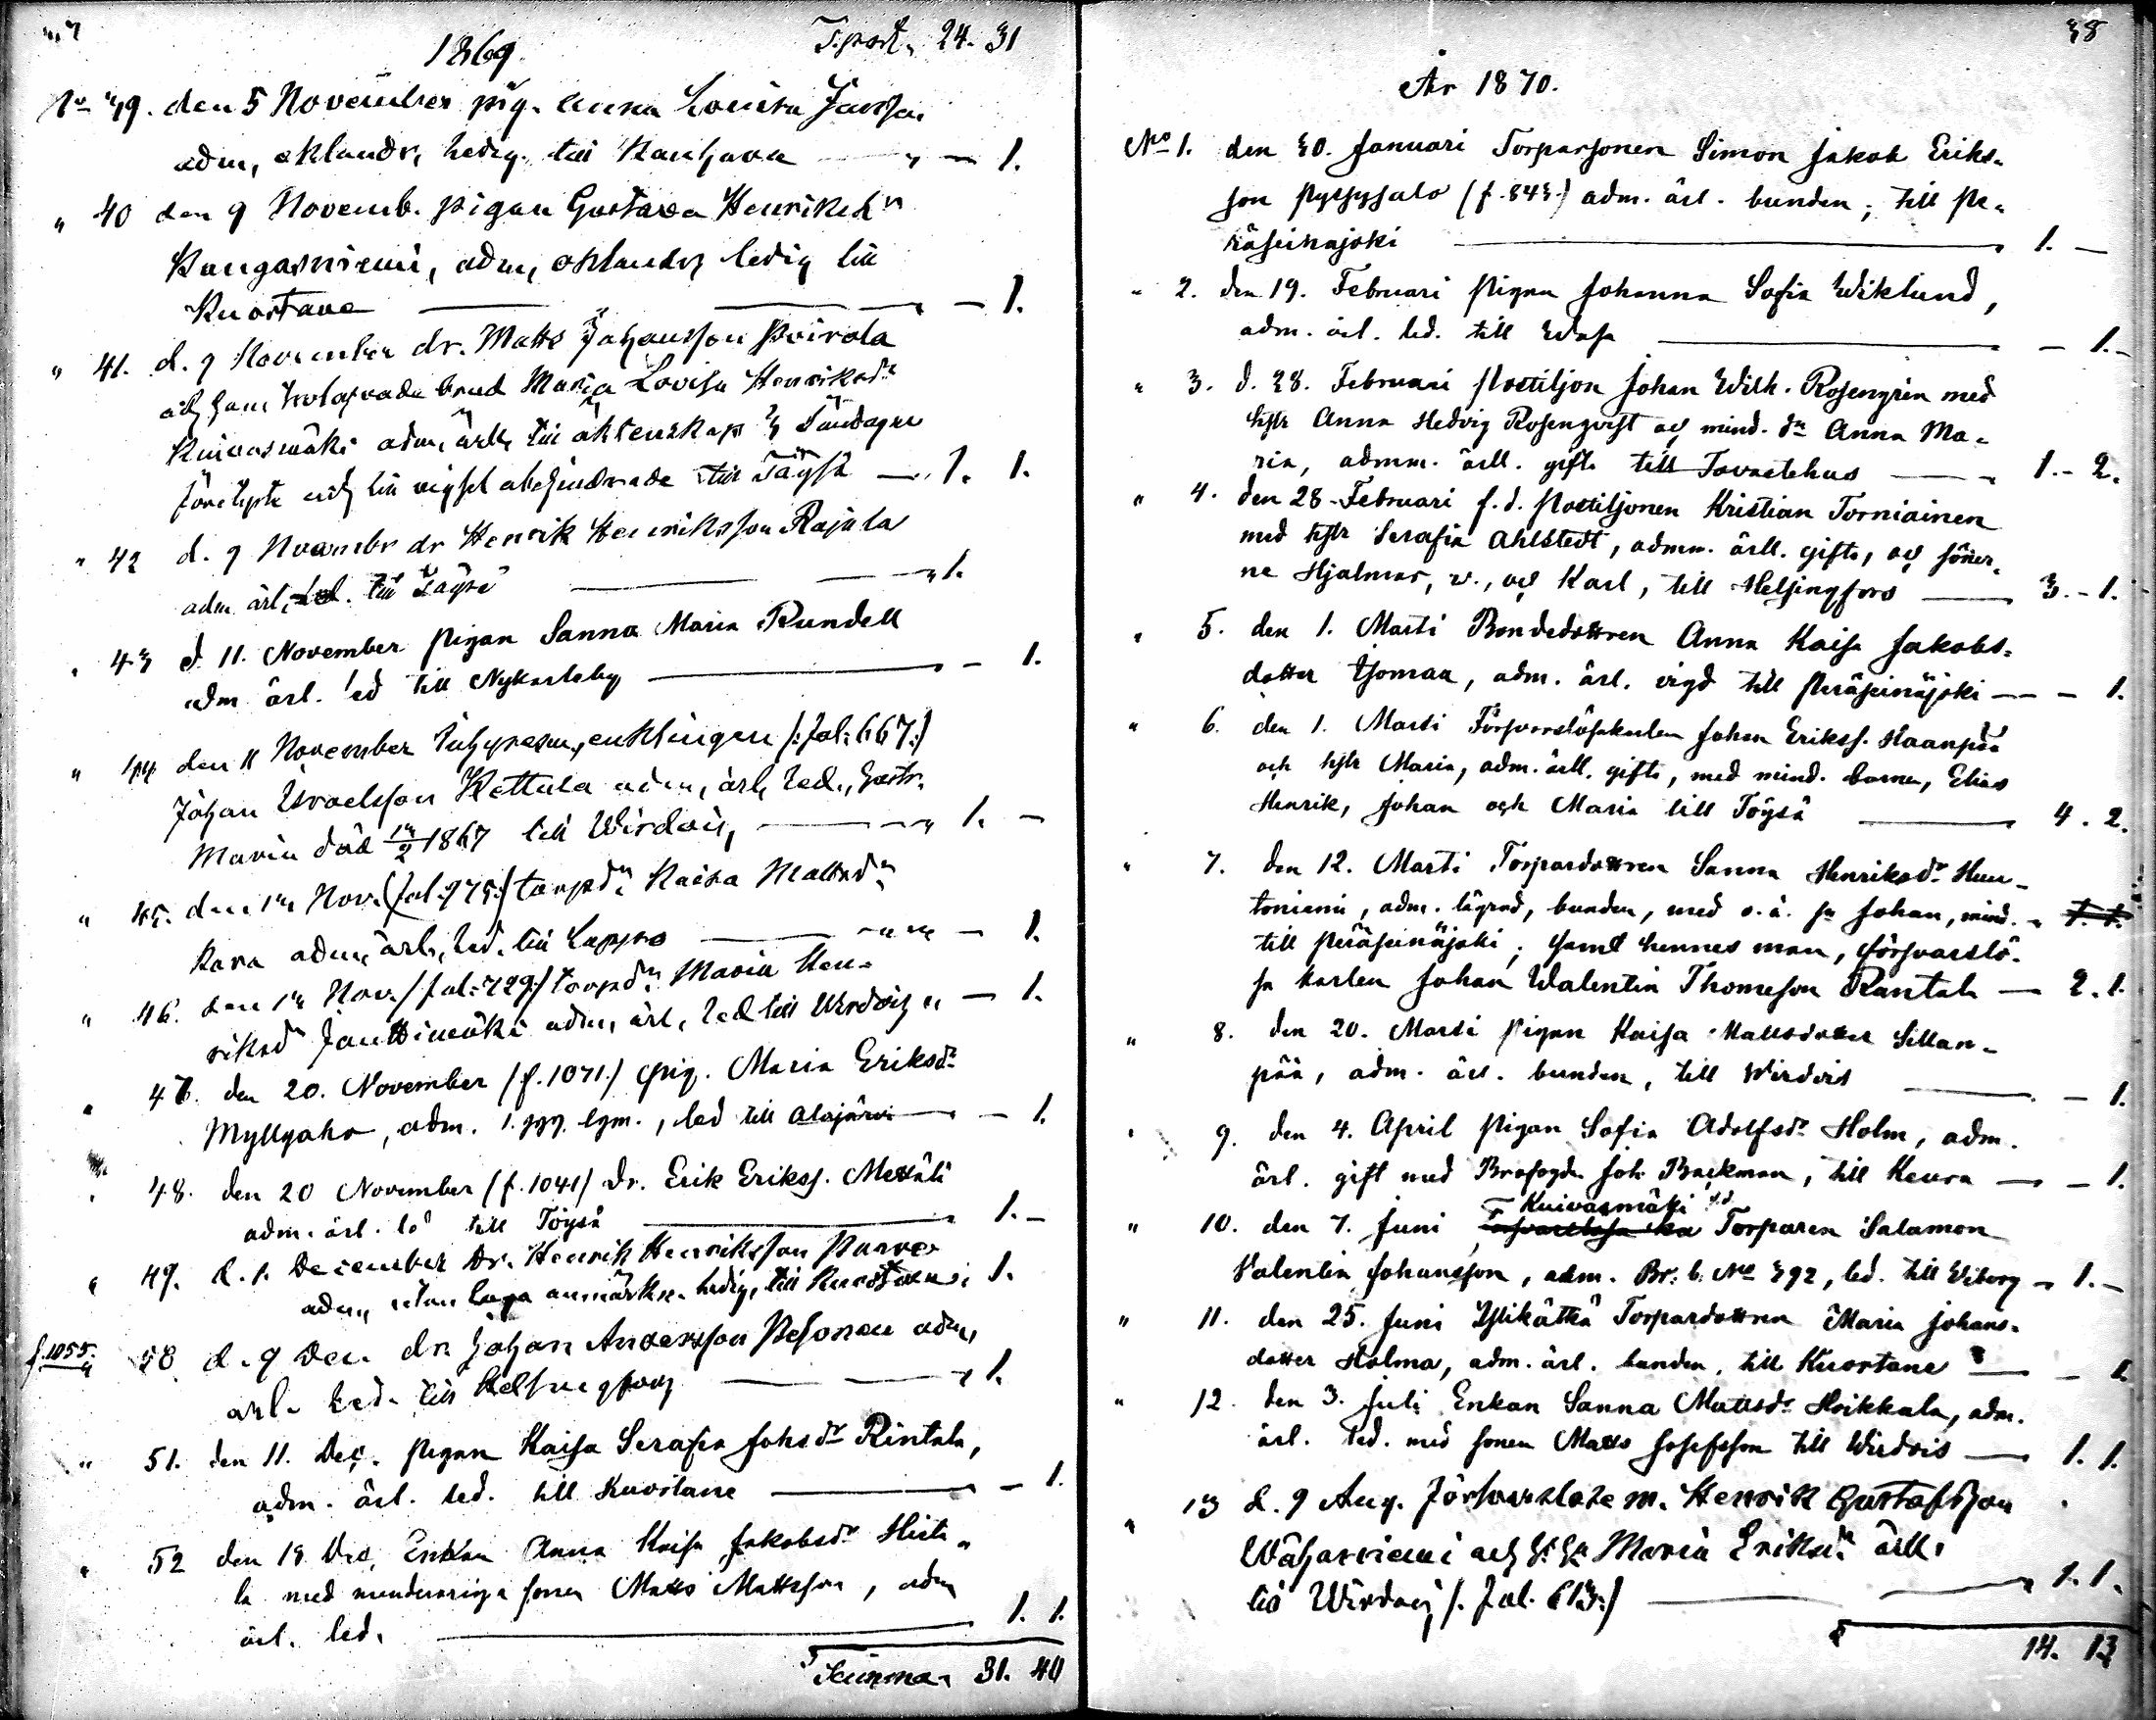 1869. T.port. 24. 31
No 39. den 5 November pig. Anna Lovisa Jans
adm, oklandr, ledig. till Kauhava — 1.
" 40 den 9 Novemb. pigan Gustava Henriksdr
Kangasniemi, adm, oklandr, ledig till
Kuortane — 1.
" 41. d. 9 November dr. Matts Johansson Poirola
och hans trolofvade brud Maria Lovisa Henriksdr
Kuivasmäki adm, ärl, till äktenskap 3 Söndagar
förelyste och till vigsel obehindrade till Töysä — 1. 1.
" 42 d. 9 Novembr dr Henrik Henriksson Rajala
adm ärl, led. till Töysä — 1.
" 43 d. 11. November pigan Sanna Maria Rundell
adm ärl. led till Nykarleby — 1.
" 44 den 11 November enklingen /:fol: 667:/
Johan Israelsson Kettula adm, ärl, led., hustr.
Maria död 1867 till Wirdois, — 1. —
" 45. den 14 Nov. (fol: 975:) torpdr Kaisa Mattsdr
Kara adm, ärl, led. till Lappo — 1.
" 46. den 14 Nov. /fol: 729:/ torpdr Maria Hen-
riksdr Jouttimäki adm, ärl, led till Wirdois " — 1.
" 47. den 20. November (f. 1071.) pig. Maria Eriksdr
Myllyaho, adm. 1. ggg. lgm., led till Alajärvi — 1.
" 48. den 20 November (f. 1041) Dr. Erik Erikss. Mettälä
adm. ärl. led till Töysä — 1. —
" 49. d. 1. December Dr. Henrik Henriksson Purva
adm, utan laga anmärkn. ledig, till Kuortane 1.
f. 1055. " 50 d. 9 Dec. dr. Johan Andersson Pesonen adm,
ärl. led. till Helsingfors — 1.
" 51. den 11. Dec. pigan Kaisa Serafia Johsdr Rintala,
adm. ärl. led. till Kuortane — 1.
" 52 den 18 Dec. Enkan Anna Kaisa Jakobsdr Hieta-
la med minderåriga sonen Matts Mattsson, adm
ärl. led. — 1. 1.
Summa 31. 40
38
År 1870.
No 1. den 30. Januari Torparsonen Simon Jakob Eriks-
son Pyssysalo (f. 843.) adm. ärl. bunden, till Pe-
räseinäjoki — 1. —
" 2. den 19. Februari Pigan Johanna Sofia Wiklund,
adm. ärl. led. till Wasa — 1. —
" 3. d. 28. Februari Postiljon Johan Wilh. Rosengrén med
hstr Anna Hedvig Rosenqvist och mind. dr Anna Ma-
ria, admm. ärll. gifta till Tavastehus — 1. - 2.
" 4. den 28. Februari f.d. Postiljonen Kristian Torniainen
med hstr Serafia Ahlstedt, admm. ärll. gifta, och söner-
ne Hjalmar, v., och Karl, till Helsingfors — 3. - 1.
" 5. den 1. Marti Bondedottren Anna Kaisa Jakobs-
dotter Isomaa, adm. ärl. vigd till Peräseinäjoki — — 1.
" 6. den 1. Marti Försvarslösakarlen Johan Erikss. Haanpää
och hstr Maria, adm. ärll. gifta, med mind. barnen, Elias
Henrik, Johan och Maria till Töysä — 4. 2.
" 7. den 12. Marti Torpardottren Sanna Henriksdr Huh-
toniemi, adm. lägrad, bunden, med o. ä. sn Johan, mind. " 1. 1.
till Peräseinäjoki; samt hennes man, försvarslö-
sa karlen Johan Walentin Thomeson Rantala — 2. 1.
" 8. den 20. Marti Pigan Kaisa Mattsdotter Sillan-
pää, adm. ärl. bunden, till Wirdois — 1.
" 9. den 4. April Pigan Sofia Adolfsdr Holm, adm.
ärl. gift med Brofogden Joh. Backman, till Keuru — — 1.
Kuivasmäki
" 10. den 7. Juni Torparen Salamon
Valentin Johansson, adm. Br: b. No 392, led. till Viborg — 1. —
" 11. den 25. Juni Torpardottren Maria Johans-
dotter Holma, adm. ärl. bunden, till Kuortane — — 1.
" 12. den 3. Juli Enkan Sanna Mattsdr Hoikkala, adm.
ärl. led. med sonen Matts Josefsson till Wirdois — 1. 1.
" 13 d. 9 Aug. Försvarslöse m. Henrik Gustafsson
Wähäniemi och hstr Maria Eriksdr ärll.
till Wirdois /. fol. 613:/ — 1. 1.
14. 13